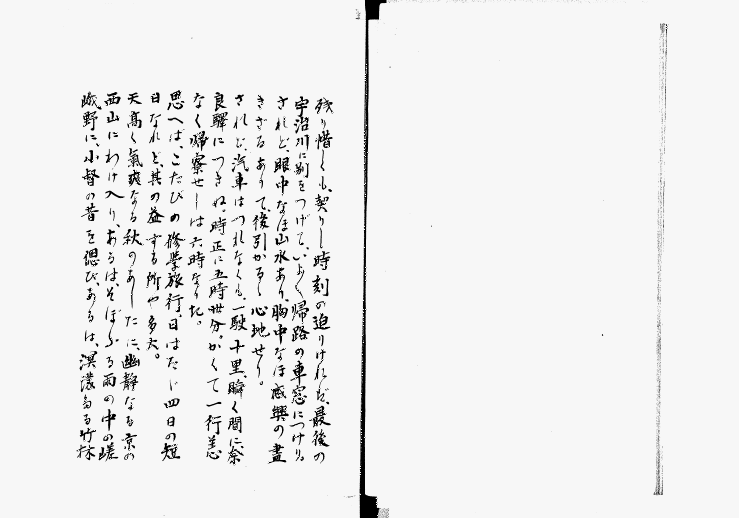 残り惜しくも、契りし時刻の迫りければ、最後の
宇治川に別をつげて、いよく帰路の車窓につけり。
されど、眼中なほ山水あり、胸中なほ感興の盡
きざるありて、後引かるゝ心地せり。
されど、汽車はつれなくも、一駛千里、瞬く間に、奈
良驛につきぬ。時正に五時卅分。かくて一行恙
なく帰寮せしは六時なりた。
思へば、こたびの修學旅行。日はたゞ四日の短
日なれど、其の益する所や多大。
天高く氣爽なる秋のあしたに、幽静なる京の
西山にわけ入り、あるは、そぼふる雨の中の嵯
峨野に、小督の昔を偲び、あるは、溟濛たる竹林